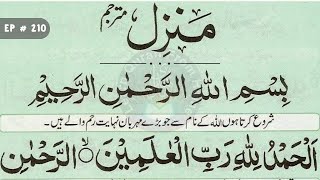 EP # 210
منزل مترجم
بِسْمِ اللهِ الرَّحْمٰنِ الرَّحِيْمِ
شروع کرتا ہوں اللہ کے نام سے جو بڑے مہربان نہایت رحم والے ہیں۔
اَلْحَمْدُ لِلّٰهِ رَبِّ الْعٰلَمِيْنَ ۙ الرَّحْمٰنِ